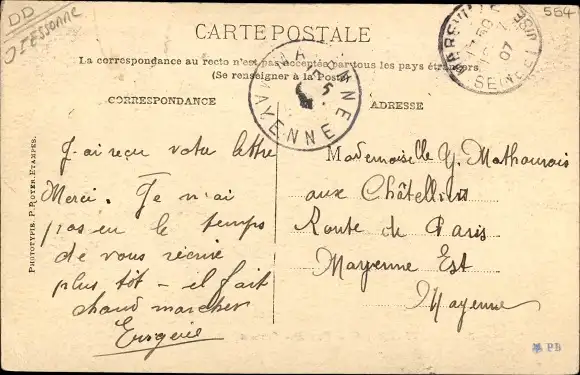 DD
91 ESSONNE
554
CARTE POSTALE
La correspondance au recto n'est pas acceptée par tous les pays étrangers
(Se renseigner à la Poste)
CORRESPONDANCE
J'ai reçu votre lettre
Merci. Je n'ai
pas eu le temps
de vous récrire
plus tôt – il fait
chaud marcher
Eugénie
ADRESSE
Mademoiselle Y.
aux
Route de Paris
Mayenne Est
Mayenne
MAYENNE
MAYENNE
5
50
07
SEINE ET OISE
PHOTOTYPIE. P. ROYER. ETAMPES.
PB